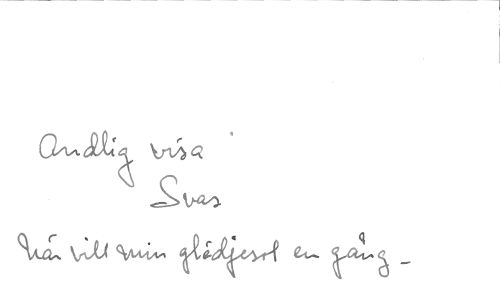 Andlig visa
Svas
När vill min glädjesol en gång -